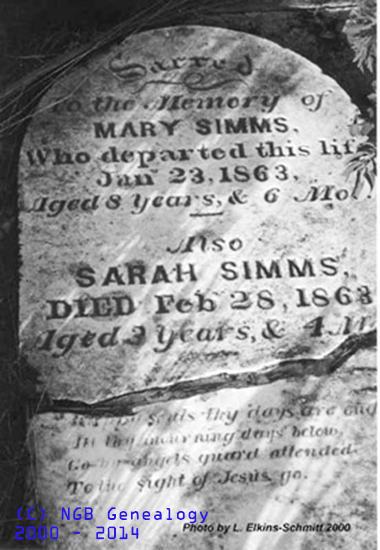 Sacred
to the Memory of
MARY SIMMS,
Who departed this lif
Jan 23, 1863,
Aged 8 Years, & 6 Mo.
Also
SARAH SIMMS,
DIED Feb 28, 1863
Aged 9 Years, & 4 M
thy days are end
In thy mourning days below,
Go angels guard attended.
To the sight of Jesus go.
(C) NGB Genealogy
2000 - 2014
Photo by L. Elkins-Schmitt 2000